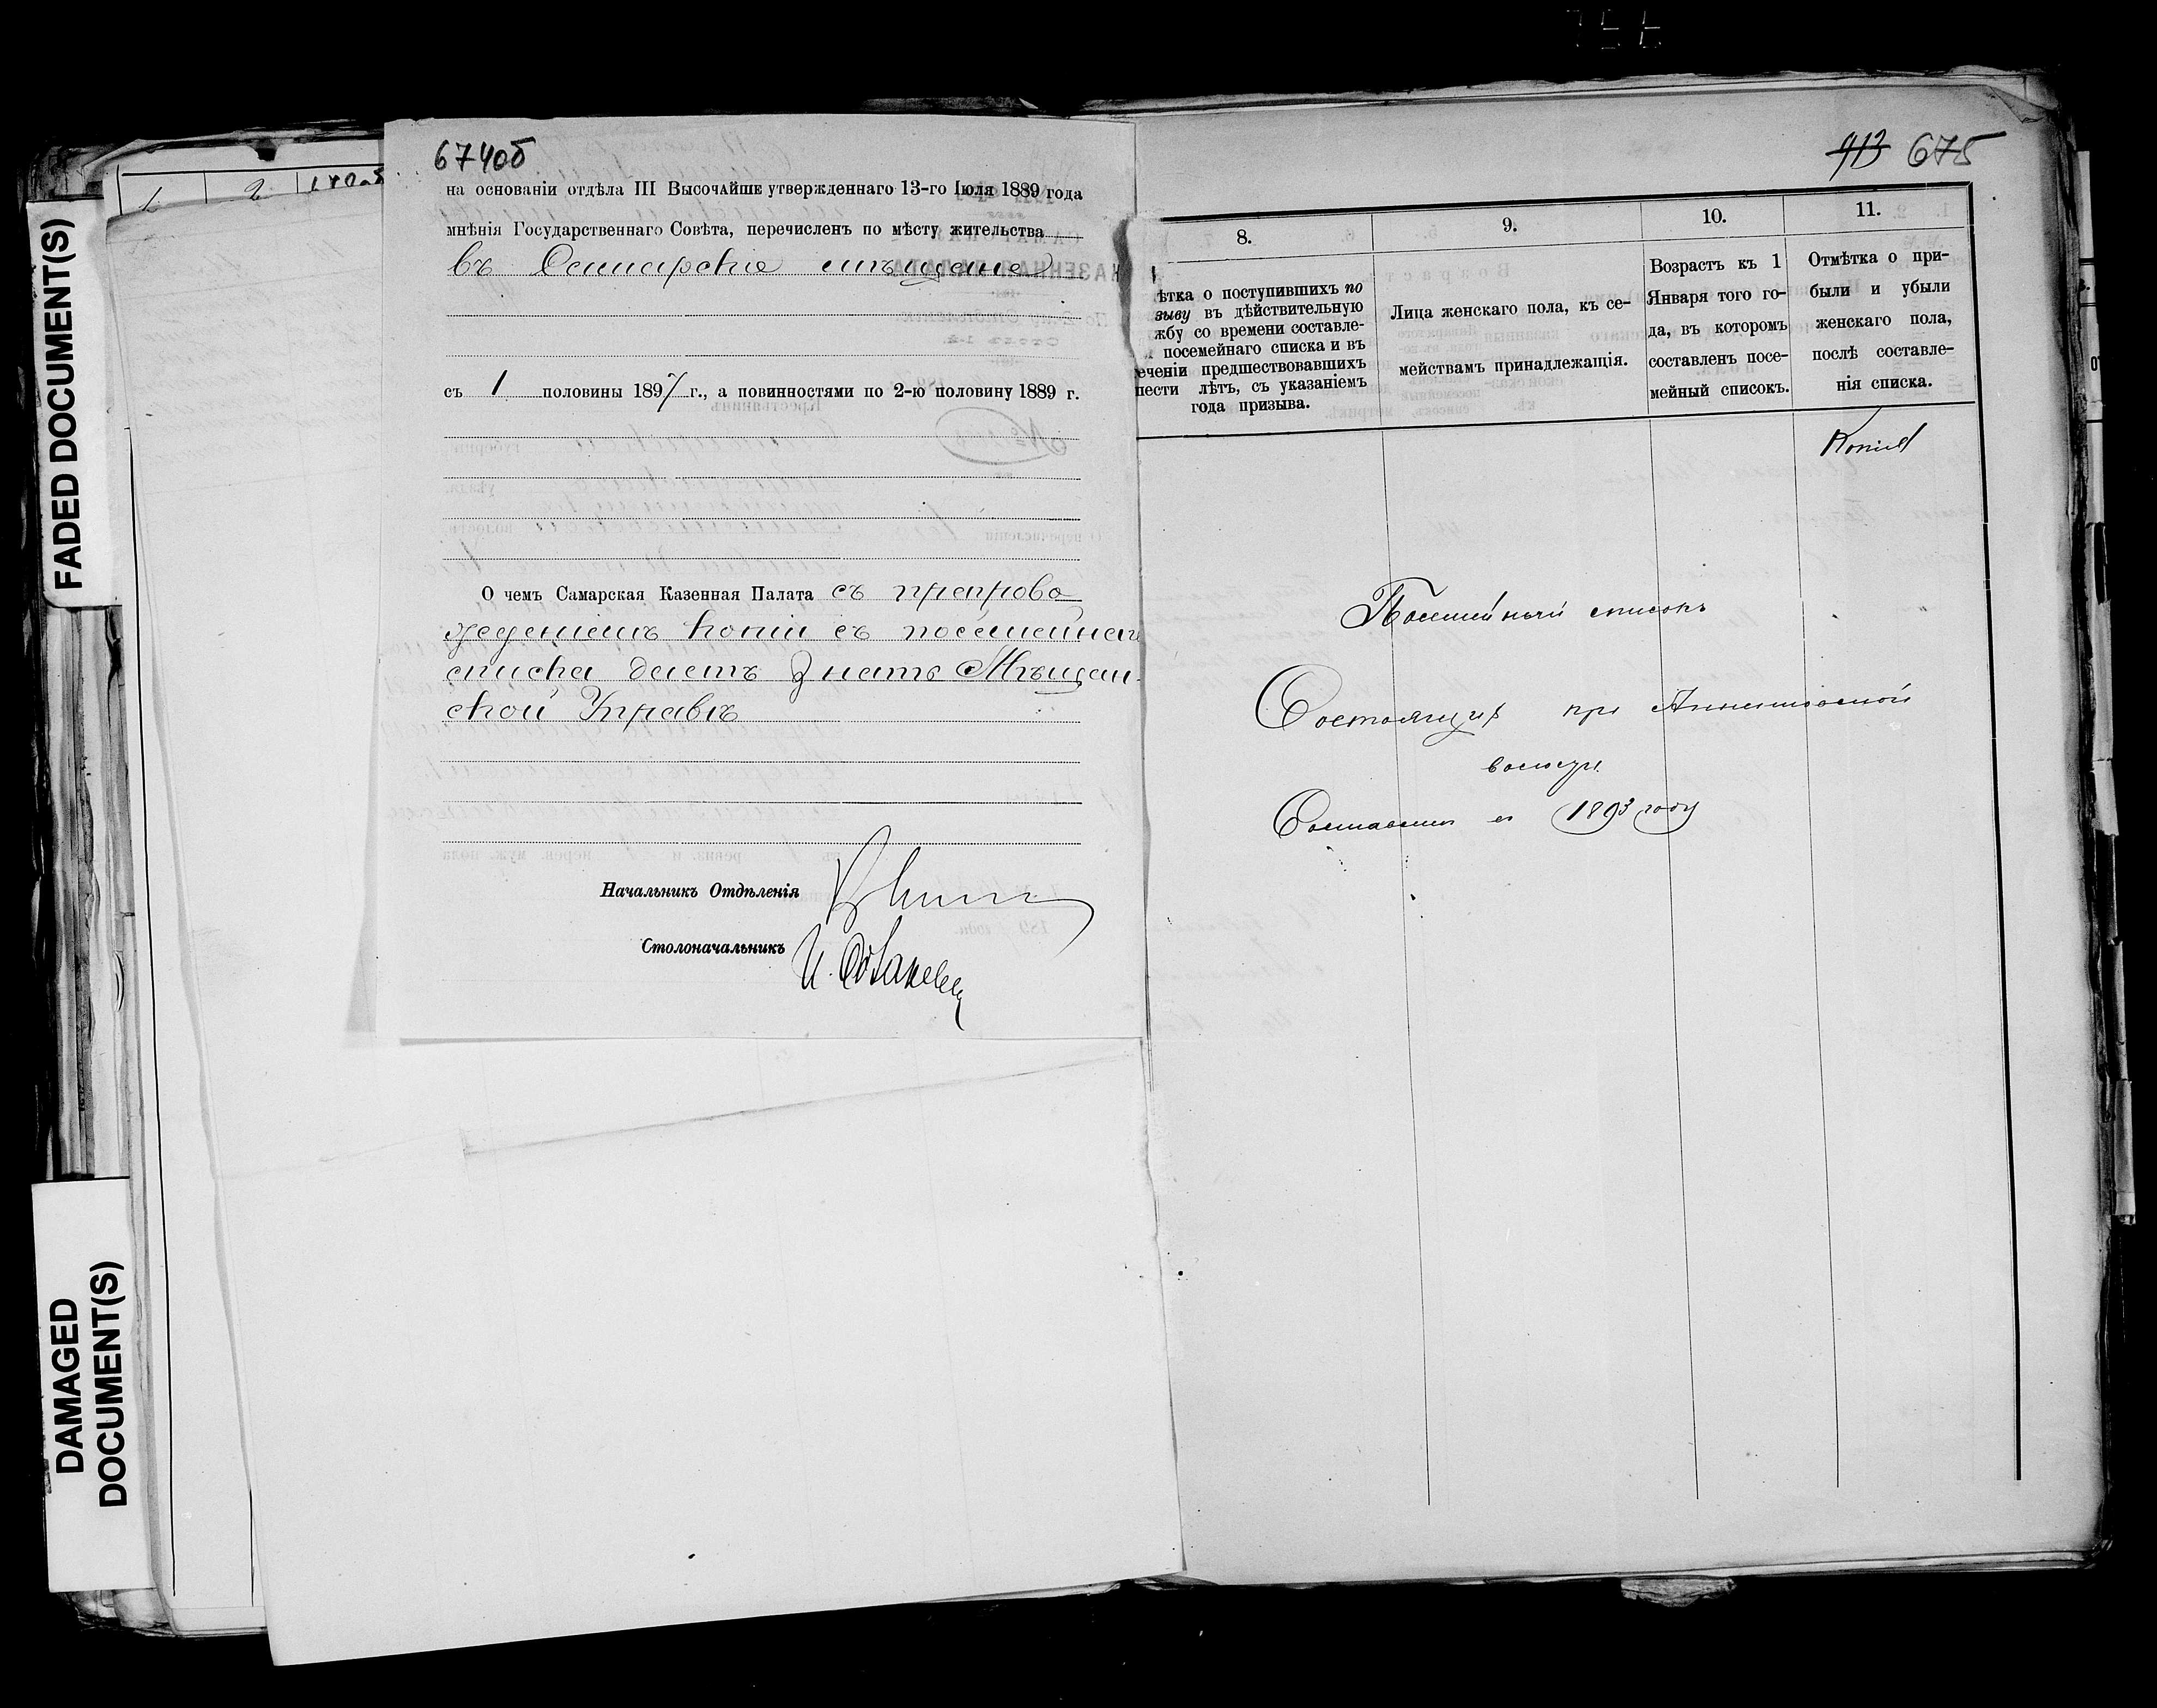 FADED DOCUMENT(S)
DAMAGED
DOCUMENT(S)
1 2
674об
на основаніи отдѣла III Высочайше утвержденнаго 13-го Іюля 1889 года
мнѣнія Государственнаго Совѣта, перечисленъ по мѣсту жительства
въ Самарскіе мѣщане
съ 1 половины 1897 г., а повинностями по 2-ю половину 1889 г.
О чемъ Самарская Казенная Палата съ препрово
жденіемъ копіи съ посемейнаго
списка даетъ знать Мѣщан-
ской Управѣ
Начальникъ Отдѣленія
Столоначальникъ
И.
913 675
8. 9. 10. 11.
ѣтка о поступившихъ по
зыву въ дѣйствительную
жбу со времени составле-
посемейнаго списка и въ
еченіи предшествовавшихъ
шести лѣтъ, съ указаніемъ
года призыва.
Лица женскаго пола, къ се-
мействамъ принадлежащія.
Возрастъ къ 1
Января того го-
да, въ которомъ
составленъ посе-
мейный списокъ.
Отмѣтка о при-
были и убыли
женскаго пола,
послѣ составле-
нія списка.
Копія
Посемейный списокъ
Состоящихъ при
волости
Составленъ въ 1893 году